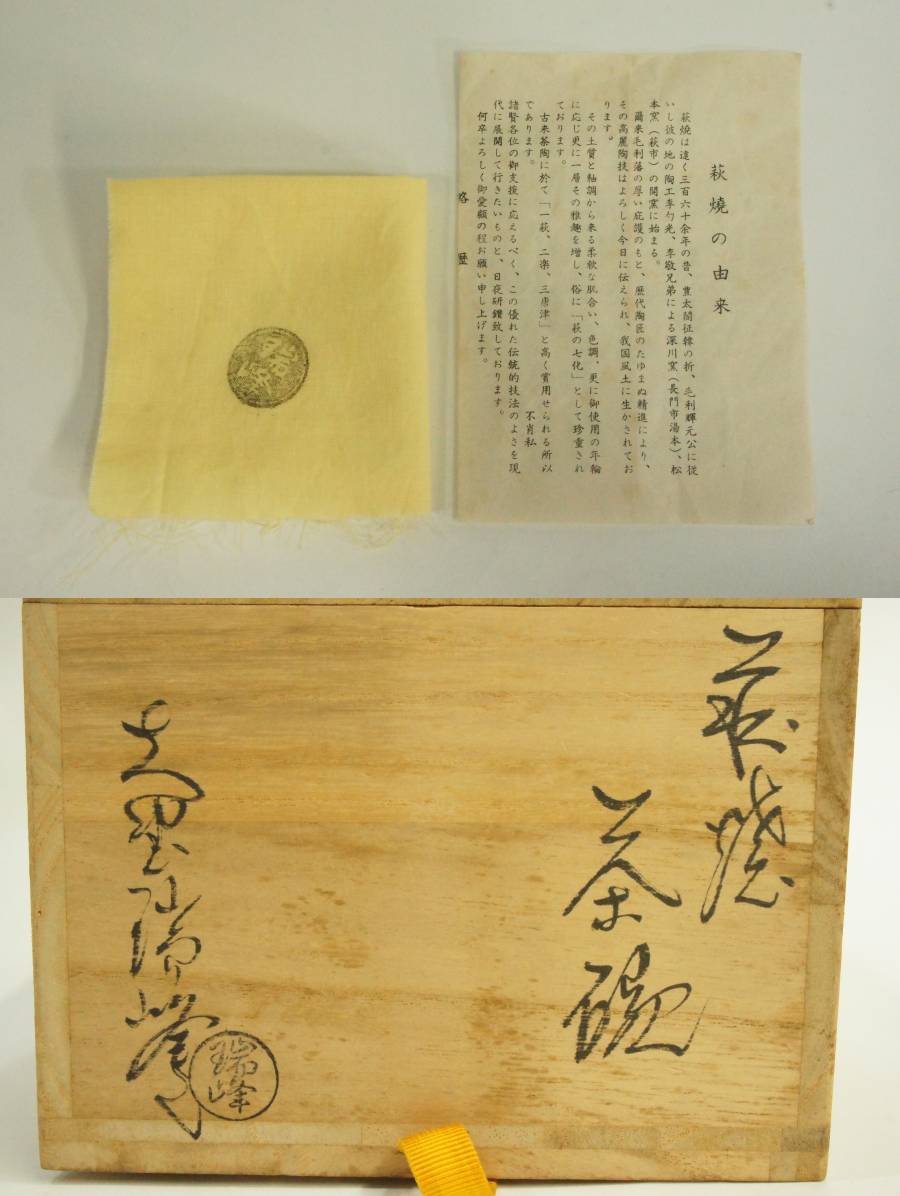 萩燒の由来
萩焼は遠く三百六十余年の昔、豊太閤征韓の折、毛利輝元公に従
いし彼の地の陶工李勺光、李敬兄弟による深川窯（長門市湯本）、松
本窯（萩市）の開窯に始まる。
爾来毛利藩の厚い庇護のもと、歴代陶匠のたゆまぬ精進により、
その高麗陶技はよろしく今日に伝えられ、我国風土に生かされてお
ります。
その土質と釉調から来る柔軟な肌合い、色調、更に御使用の年輪
に応じ更に一層その雅趣を増し、俗に「萩の七化」として珍重され
ております。
古来茶陶に於て「一萩、二楽、三唐津」と高く賞用せられる所以
であります。
不肖私
諸賢各位の御支援に応えるべく、この優れた伝統的技法のよさを現
代に展開して行きたいものと、日夜研鑽致しております。
何卒よろしく御愛顧の程お願い申し上げます。
略歴
瑞峰
萩燒
茶碗
瑞峯
瑞峰